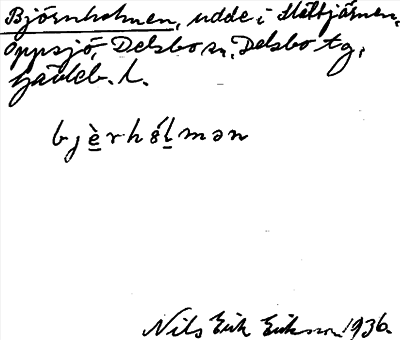 Björnholmen, udde i Stöltjärnen,
Oppsjö, Delsbo sn, Delsbo tg,
Gävleb. l.
bjè̱rhó̱ḻmən
Nils Erik Erikson 1936